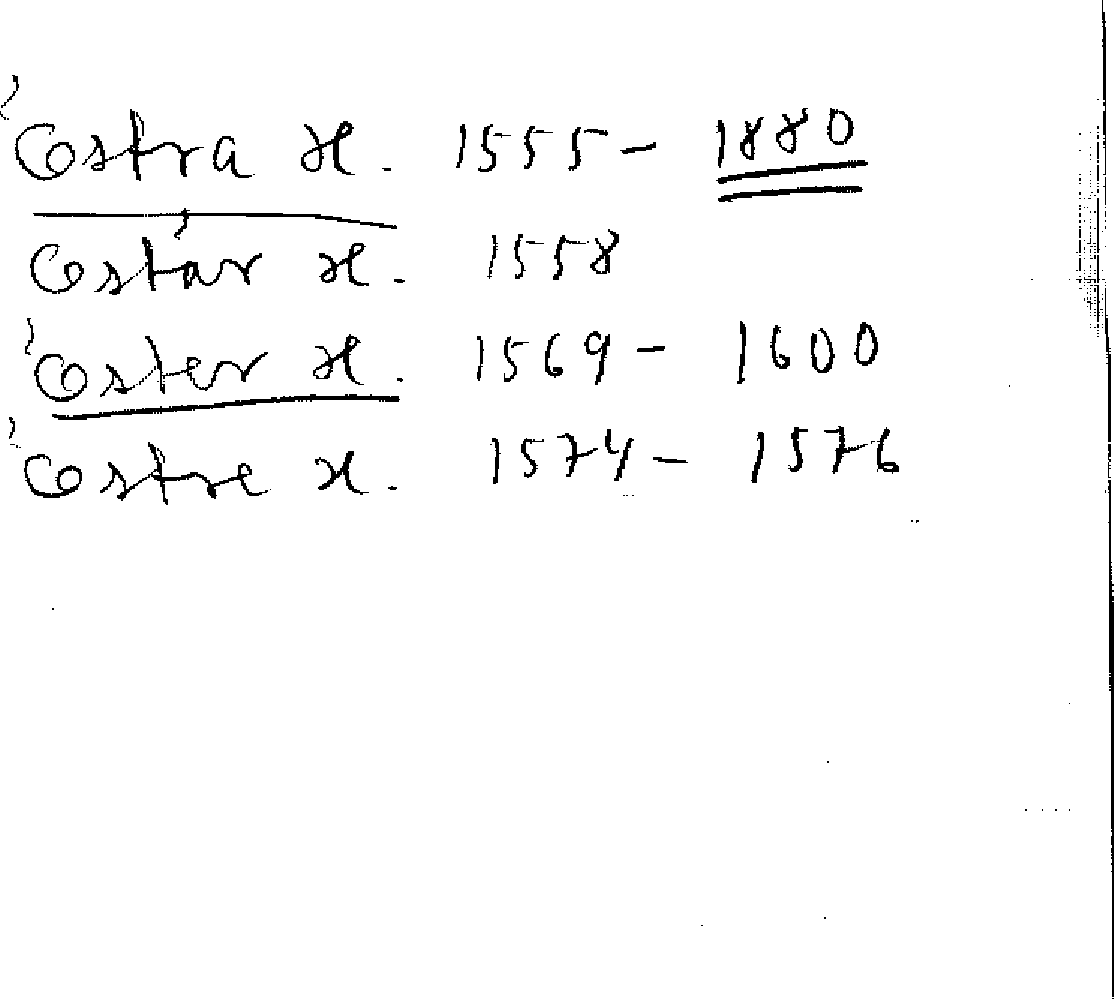 Östra H. 1555 - 1880
Östar H. 1558
Öster H. 1569 - 1600
Östre H. 1574 - 1576